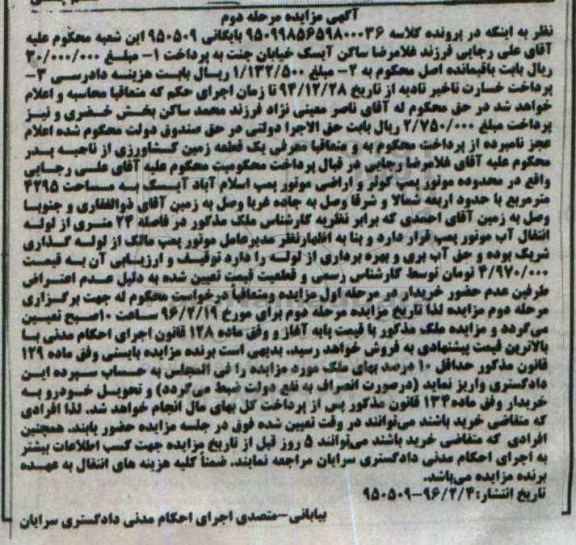 آگهی مزایده مرحله دوم
نظر به اینکه در پرونده کلاسه ۹۵۰۹۹۸۵۶۵۹۸۰۰۰۳۶ بایگانی ۹۵۰۵۰۹ این شعبه محکوم علیه
آقای علی رجایی فرزند غلامرضا ساکن آیسک خیابان جنت به پرداخت ۱- مبلغ ۳۰/۰۰۰/۰۰۰
ریال بابت باقیمانده اصل محکوم به ۲- مبلغ ۱/۱۳۲/۵۰۰ ریال بابت هزینه دادرسی ۳-
پرداخت خسارت تاخیر تادیه از تاریخ ۹۴/۱۲/۲۸ تا زمان اجرای حکم که متعاقبا محاسبه و اعلام
خواهد شد در حق محکوم له آقای ناصر معینی نژاد فرزند محمد ساکن بخش خضری و نیز
پرداخت مبلغ ۲/۷۵۰/۰۰۰ ریال بابت حق الاجرا دولتی در حق صندوق دولت محکوم شده اعلام
عجز نامبرده از پرداخت محکوم به و متعاقبا معرفی یک قطعه زمین کشاورزی از ناحیه پدر
محکوم علیه آقای غلامرضا رجایی در قبال پرداخت محکومیت محکوم علیه آقای علی رجایی
واقع در محدوده موتور پمپ کوثر و اراضی موتور پمپ اسلام آباد آیسک به مساحت ۴۲۹۵
مترمربع با حدود اربعه شمالا و شرقا وصل به جاده غربا وصل به زمین آقای ذوالفقاری و جنوبا
وصل به زمین آقای احمدی که برابر نظریه کارشناس ملک مذکور در فاصله ۲۴ متری از لوله
انتقال آب موتور پمپ قرار دارد و بنا به اظهارنظر مدیرعامل موتور پمپ مالک از لوله گذاری
شریک بوده و حق آب بری و بهره برداری از لوله را دارد توقیف و ارزیابی آن به قیمت
۴/۹۷۰/۰۰۰ تومان توسط کارشناس رسمی و قطعیت قیمت تعیین شده به دلیل عدم اعتراض
طرفین عدم حضور خریدار در مرحله اول مزایده ومتعاقباً درخواست محکوم له جهت برگزاری
مرحله دوم مزایده لذا تاریخ مزایده مرحله دوم برای مورخ ۹۶/۲/۱۹ ساعت ۱۰صبح تعیین
می‌گردد و مزایده ملک مذکور با قیمت پایه آغاز و وفق ماده ۱۲۸ قانون اجرای احکام مدنی با
بالاترین قیمت پیشنهادی به فروش خواهد رسید. بدیهی است برنده مزایده بایستی وفق ماده ۱۲۹
قانون مذکور حداقل ۱۰ درصد بهای ملک مورد مزایده را فی المجلس به حساب سپرده این
دادگستری واریز نماید (درصورت انصراف به نفع دولت ضبط می‌گردد) و تحویل خودرو به
خریدار وفق ماده۱۳۴ قانون مذکور پس از پرداخت کل بهای مال انجام خواهد شد. لذا افرادی
که متقاضی خرید باشند می‌توانند در وقت تعیین شده فوق در جلسه مزایده حضور یابند. همچنین
افرادی که متقاضی خرید باشند می‌توانند ۵ روز قبل از تاریخ مزایده جهت کسب اطلاعات بیشتر
به اجرای احکام مدنی دادگستری سرایان مراجعه نمایند. ضمناً کلیه هزینه های انتقال به عهده
برنده مزایده می‌باشد.
تاریخ انتشار:۹۶/۲/۴-۹۵۰۵۰۹
بیابانی-متصدی اجرای احکام مدنی دادگستری سرایان